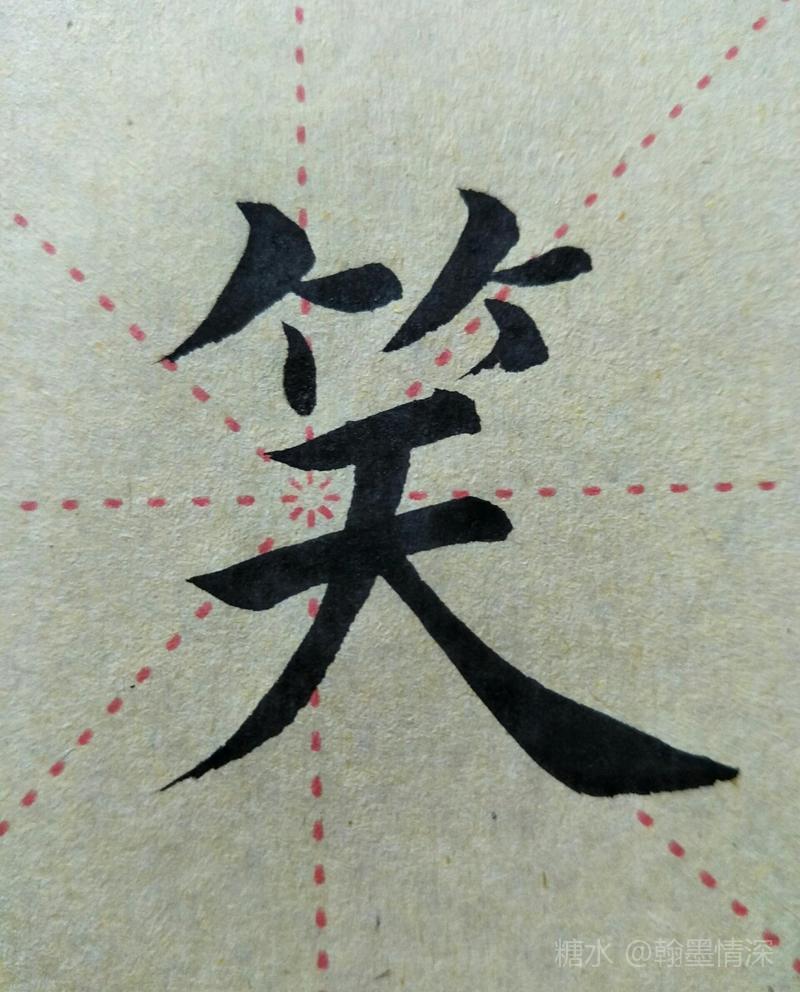 笑
糖水 @翰墨情深